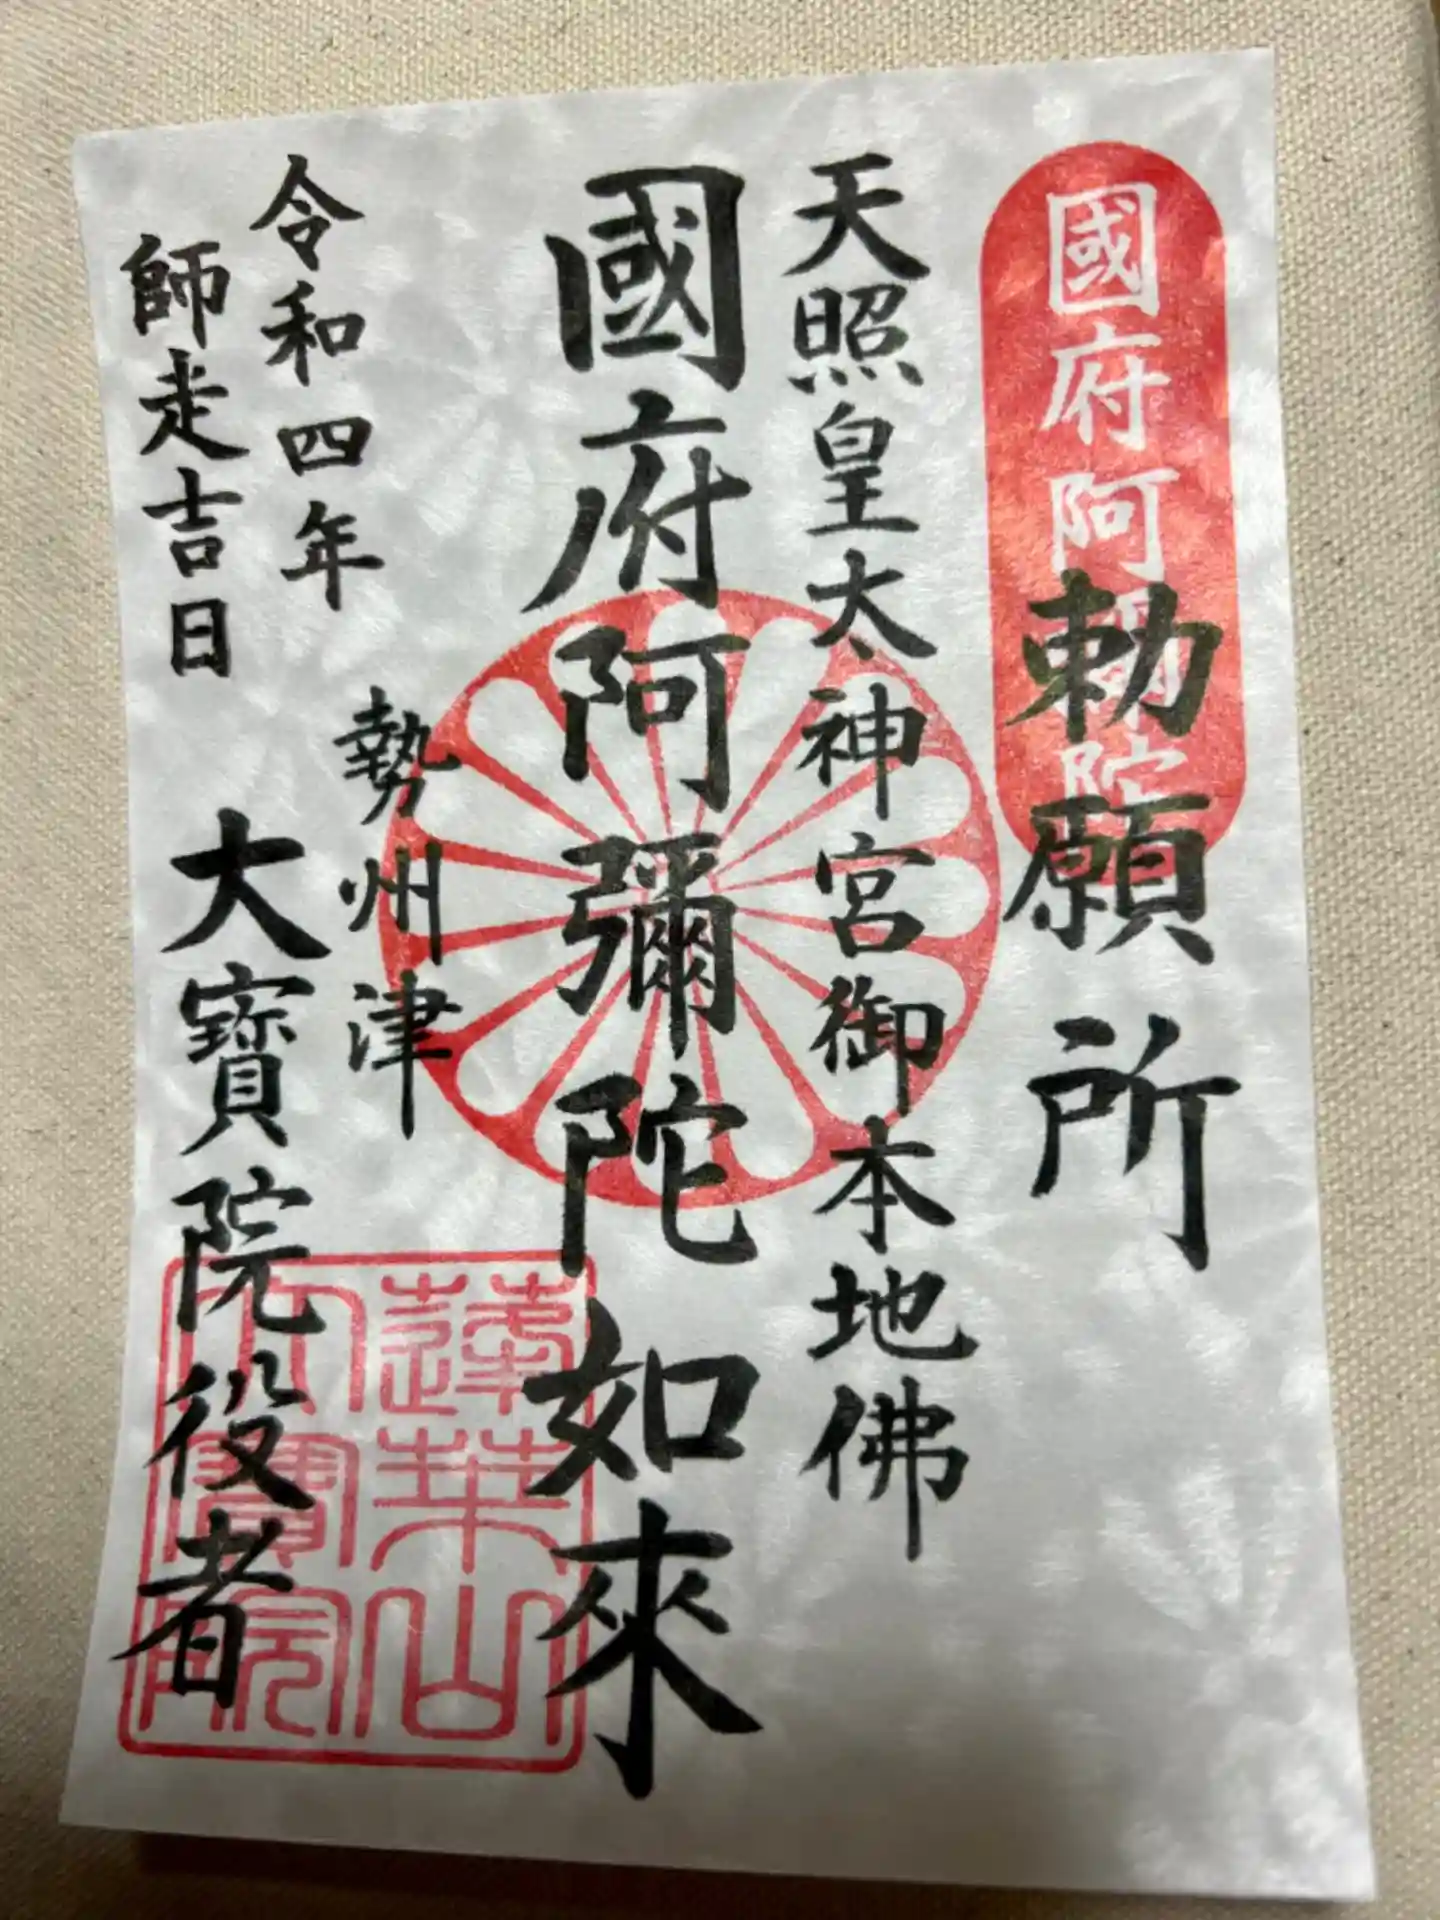 國府阿彌陀
勅願所
天照皇太神宮御本地佛
國府阿彌陀如來
勢州津
大寶院役者
令和四年
師走吉日
蓮華山
大寶院